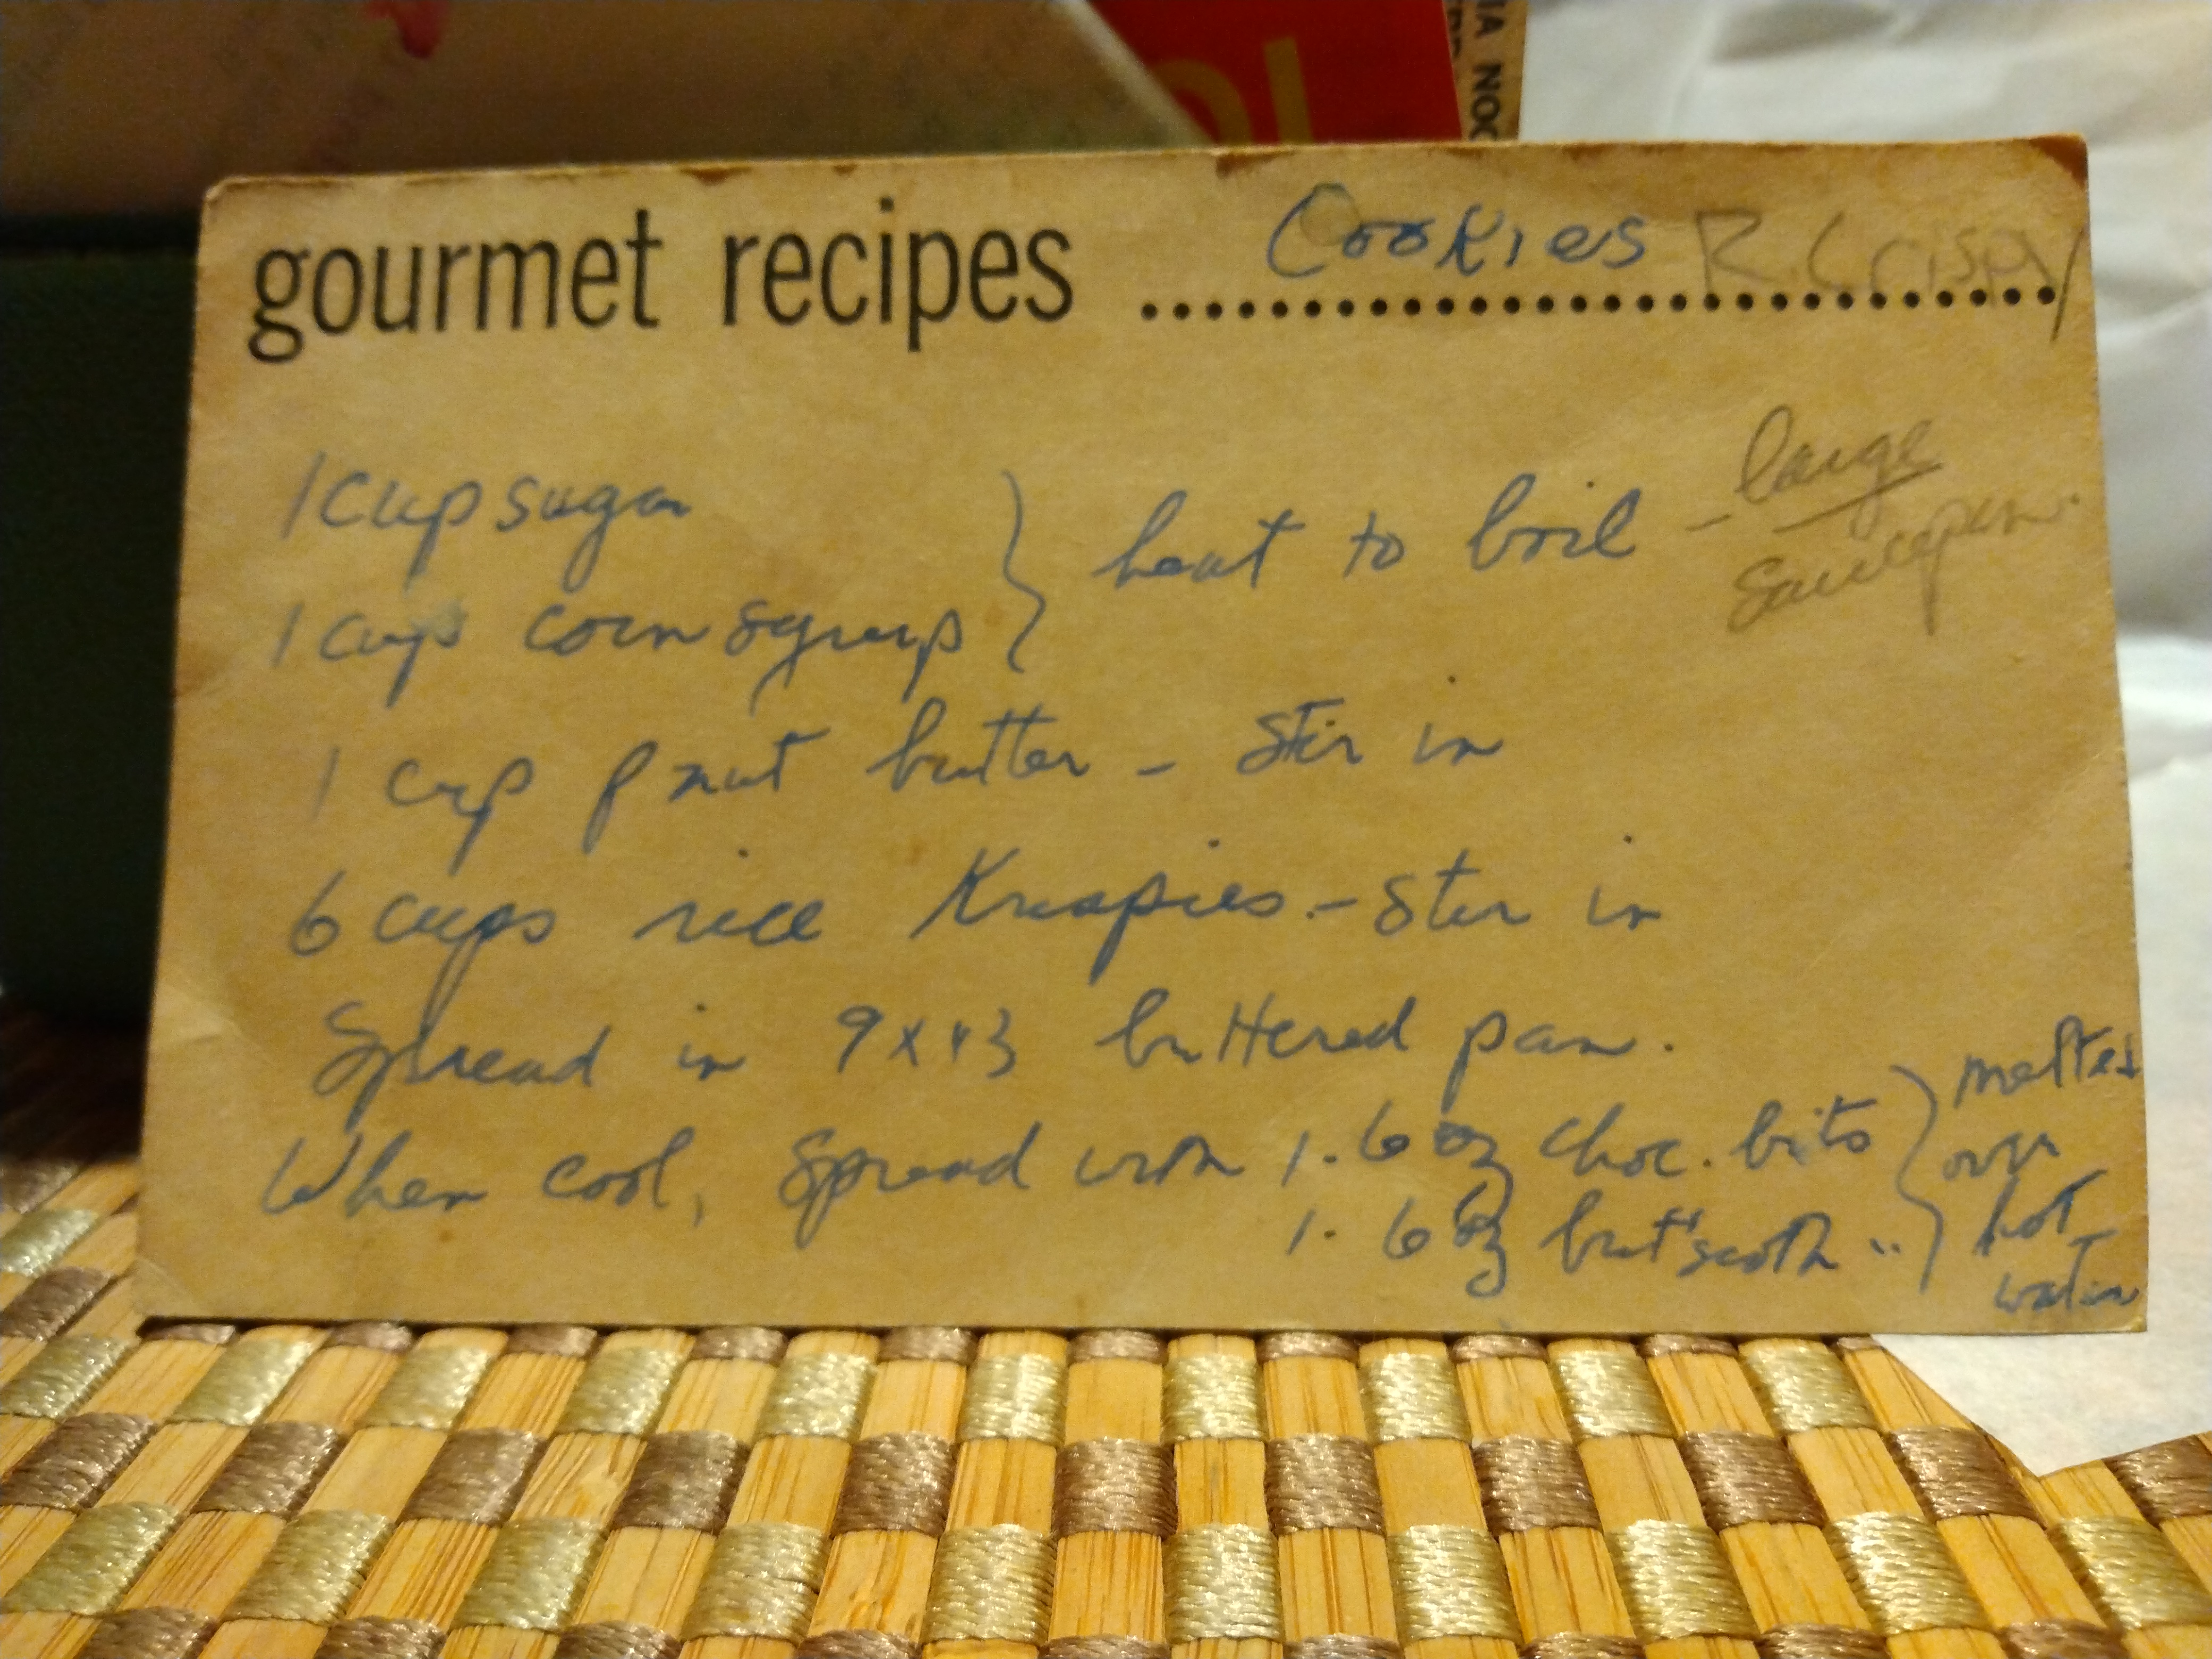 IA NOC
gourmet recipes Cookies R. Crispy
1 Cup sugar
1 cup corn syrup } heat to boil - large saucepan.
1 cup pnut butter - Stir in
6 cups rice Krispies. - Stir in
Spread in 9x13 buttered pan.
When cool, Spread with 1. 6 oz choc. bits } melted over hot water
1. 6 oz but'scoth "